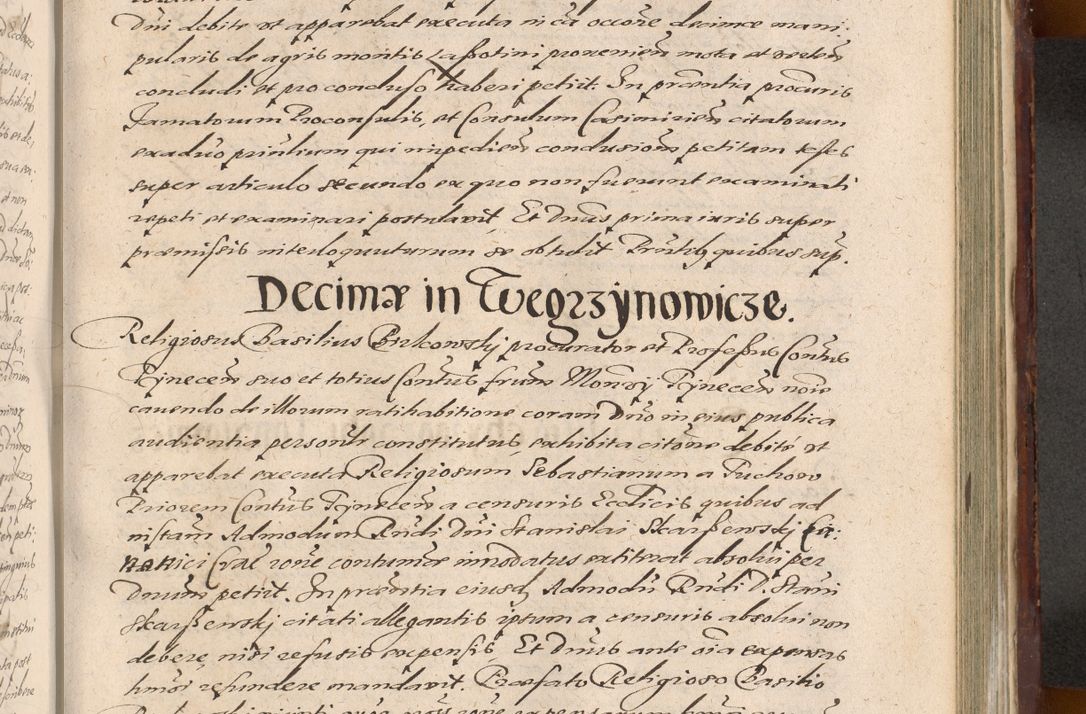 Dni debite ut apparebat executa in ca occone decimæ mani:
pularis de agris montis Lassotini provenien mota et verten
concludi et pro concluso haberi petiit. In præntia procuris
Famatorum Proconsulis, et Consulum Casimirien citatorum
ex aduo prinlium qui impedien conclusion petitam testes
super articulo secundo ex quo non fuerunt examinati
repeti et examinari postulavit. Et Dnus prima iuris super
præmissis inteloquuturum se obtulit Pntibq quibus sup.
Decimæ in Wegrzynowicze.
Religiosus Basilius procurator et Professus Contus
Tynecen suo et totius Contus frum Monrÿ Tynecen noie
cavendo de illorum ratihabitione coram Dno in eius publica
audientia personlr constitutus, exhibita citone debite ut
apparebat executa Religiosum Sebastianum a Tuchow
Priorem Contus Tynecen a censuris Ecclicis quibus ad
nistam Admodum Rndi Dni Stanislai Skarßewskj Ca:
nonici Cral rone contumæ innodatus extiterat absolvi per
Dnum petiit. In præsentia eiusd Admodu Rndi D. Stani
Skarßewskj citati allegantis ipsum a censuris absolvi non
debere, nisi refusis expensis. Et Dnus ante oia expensas
hmoi refundere mandavit. Præfato Religioso Basilio